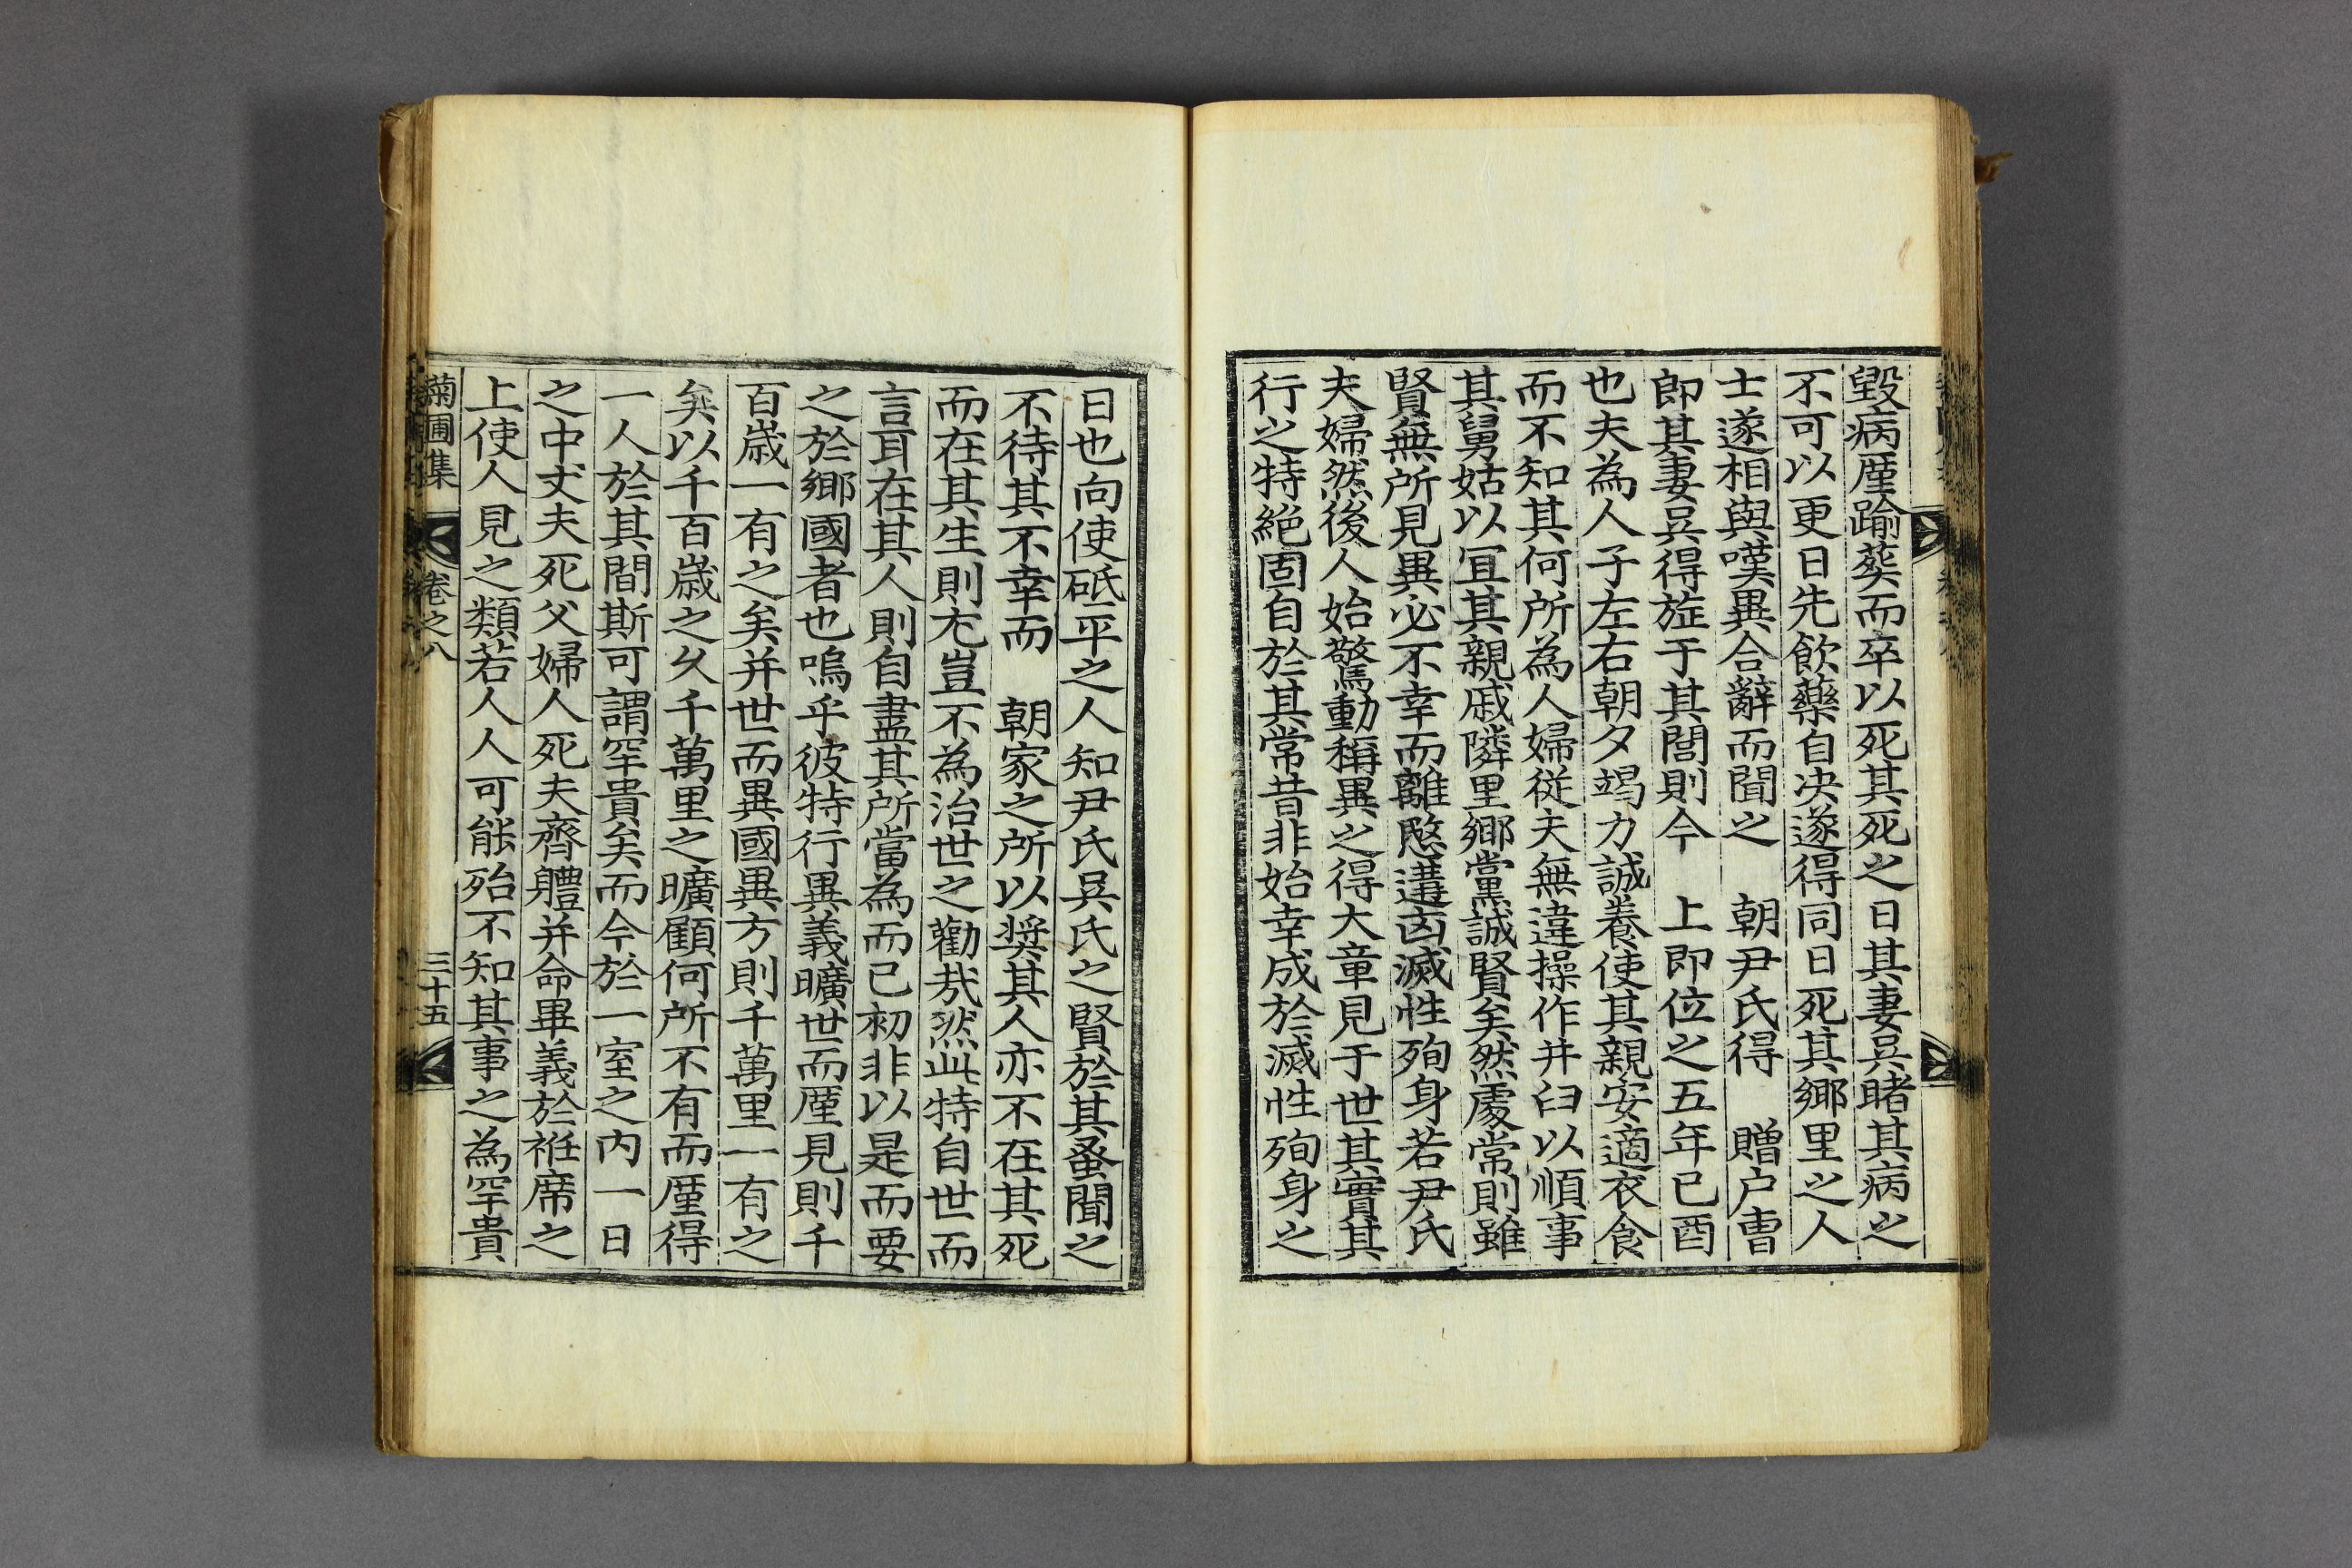 毀病厪踰葬而卒以死其死之日其妻吳睹其病之
不可以更日先飮藥自决遂得同日死其鄉里之人
士遂相與嘆異合辭而聞之 朝尹氏得 贈户曹
郎其妻吳得旌于其閭則今 上即位之五年己酉
也夫為人子左右朝夕竭力誠養使其親安適衣食
而不知其何所為人婦從夫無違操作井臼以順事
其舅姑以冝其親戚隣里鄉黨誠賢矣然處常則雖
賢無所見異必不幸而離愍遘凶滅性殉身若尹氏
夫婦然後人始驚動稱異之得大章見于世其實其
行之特絕固自於其常昔非始幸成於滅性殉身之
日也向使砥平之人知尹氏吳氏之賢於其蚤聞之
不待其不幸而 朝家之所以奬其人亦不在其死
而在其生則尤豈不為治世之勸哉然此特自世而
言耳在其人則自盡其所當為而已初非以是而要
之於鄉國者也嗚乎彼特行異義曠世而厪見則千
百歲一有之矣并世而異國異方則千萬里一有之
矣以千百歲之久千萬里之曠顧何所不有而厪得
一人於其間斯可謂罕貴矣而今於一室之內一日
之中丈夫死父婦人死夫齊軆并命畢義於袵席之
上使人見之類若人人可能殆不知其事之為罕貴
菊圃集 卷之八 三十五